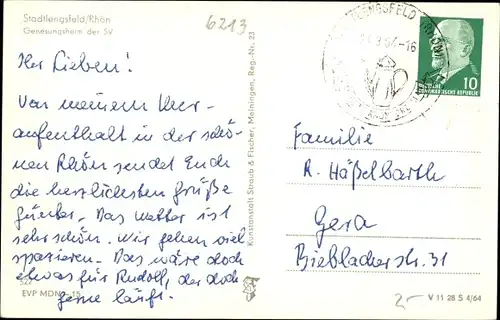 Stadtlengsfeld/Rhön
Genesungsheim der SV
6213
Ihr Lieben!
Von meinem Kur-
aufenthalt in der schö-
nen Rhön sendet Euch
die herzlichsten Grüße
Günter. Das Wetter ist
sehr schön. Wir gehen viel
spazieren. Das wäre doch
etwas für Rudolf, der doch
gerne läuft.
EVP MDN -.15
Kunstanstalt Straub & Fischer, Meiningen, Reg.-Nr. 23
STADTLENGSFELD (RHÖN)
-16
10
DEUTSCHE DEMOKRATISCHE REPUBLIK
Familie
R. Häßelbarth
Gera
Bieblacherstr. 31
2-
V 11 28 S 4/64